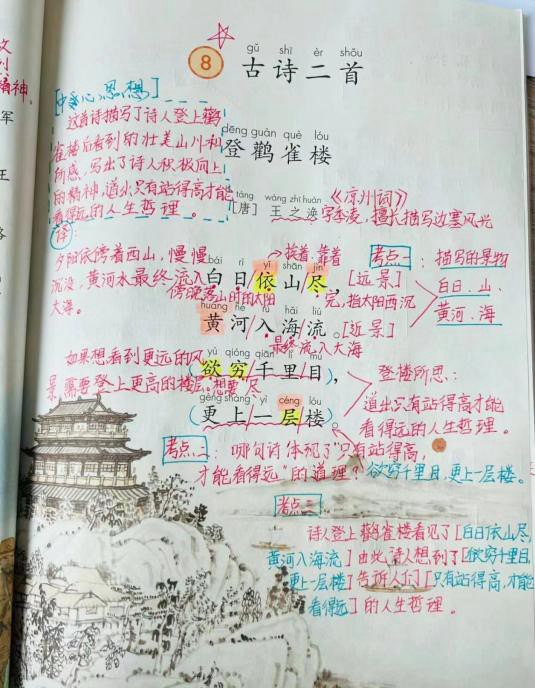 gǔ shī èr shǒu
8 古诗二首
[中心思想]
这首诗描写了诗人登上鹳
雀楼后看到的壮美山川和
所感，写出了诗人积极向上
的精神，道出只有站得高才能
看得远的人生哲理。
dēng guàn què lóu
登鹳雀楼
táng wáng zhī huàn
[唐] 王之涣
《凉州词》
字季凌，擅长描写边塞风光
译
夕阳依傍着西山，慢慢
沉没，黄河水最终流入
大海。
挨着.靠着
bái rì yī shān jìn
白日/依/山/尽，
[远景]
傍晚落山时的太阳
完，指太阳西沉
huáng hé rù hǎi liú
黄河/入/海/流。
[近景]
最终流入大海
考点一：描写的景物
白日、山、
黄河、海
如果想看到更远的风
景需要登上更高的楼层。
yù qióng qiān lǐ mù
(欲穷/千里/目)，
想要 尽
gèng shàng yì céng lóu
(更上/一层/楼。
登楼所思：
道出只有站得高才能
看得远的人生哲理。
考点二：哪句诗体现了“只有站得高，
才能看得远”的道理？欲穷千里目，更上一层楼。
考点三
诗人登上鹳雀楼看见了[白日依山尽，
黄河入海流]由此诗人想到了[欲穷千里目，
更上一层楼]告诉人们[只有站得高，才能
看得远]的人生哲理。